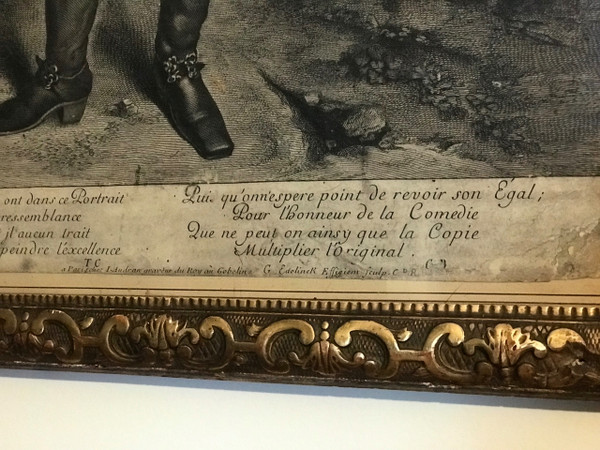 ont dans ce Portrait
ressemblance
il aucun trait
peindre l'éxcellence
Pui, qu'onn'espere point de revoir son Égal;
Pour l'honneur de la Comedie
Que ne peut on ainsy que la Copie
Multiplier l'Original.
a Paris chez I. Audran graveur du Roy au Gobelins G. Edelinck Effigiem sculp. C. P. R.